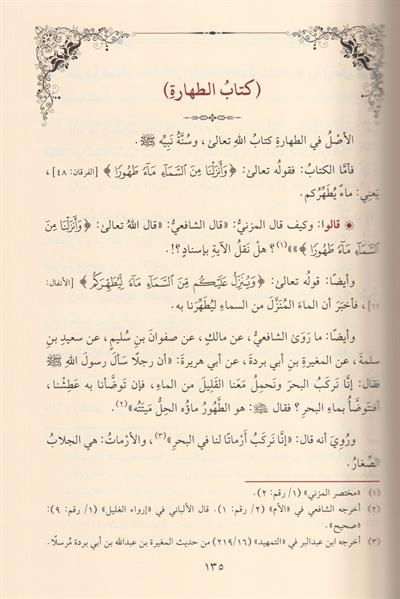 (كتابُ الطهارةِ)
الأصْلُ في الطهارةِ كتابُ اللهِ تعالىٰ، وسُنَّةُ نَبِيِّه ﷺ.
فأمَّا الكتابُ: فقوله تعالىٰ: ﴿وَأَنزَلْنَا مِنَ السَّمَآءِ مَآءً طَهُورًا﴾ [الفرقان: ٤٨]،
يَعنِي: ماءً يُطَهِّركُم.
◉ قالوا: وكيف قال المزنيُّ: «قال الشافعيُّ: «قال اللهُ تعالىٰ: ﴿وَأَنزَلْنَا مِنَ
السَّمَآءِ مَآءً طَهُورًا﴾»»(١)؟ هلْ نَقلُ الآيةِ بإسنادٍ؟!.
وأيضًا: قولُه تعالىٰ: ﴿وَيُنَزِّلُ عَلَيْكُم مِّنَ السَّمَآءِ مَآءً لِّيُطَهِّرَكُم﴾ [الأنفال:
١١]، فأخبَرَ أن الماءَ المُنَزَّلَ من السماءِ ليُطَهِّرَنا به.
وأيضًا: ما رَوَىٰ الشافعيُّ، عن مالكٍ، عن صفوانَ بنِ سُليمٍ، عن سعيدِ بنِ
سلمةَ، عن المغيرةِ بنِ أبي بردةَ، عن أبي هريرةَ: «أن رجلًا سَألَ رسولَ اللهِ ﷺ
فقال: إنَّا نَركَبُ البحرَ ونَحمِلُ مَعَنا القَليلَ من الماءِ، فإن تَوضَّأنا به عَطِشْنا،
أفنَتوضَّأُ بماءِ البحرِ؟ فقال ﷺ: هو الطَّهُورُ ماؤه الحِلُّ مَيْتَتُه»(٢).
ورُوِيَ أنه قال: «إنَّا نَركَبُ أرْماثًا لنا في البحرِ»(٣)، والأرْماثُ: هي الجلابُ
الصِّغارُ.
(١) «مختصر المزني» (١/ رقم: ٢).
(٢) أخرجه الشافعي في «الأم» (٢/ رقم: ١). قال الألباني في «إرواء الغليل» (١/ رقم: ٩):
«صحيح».
(٣) أخرجه ابن عبدالبر في «التمهيد» (٢١٩/١٦) من حديث المغيرة بن عبدالله بن أبي بردة مُرسلًا.
١٣٥